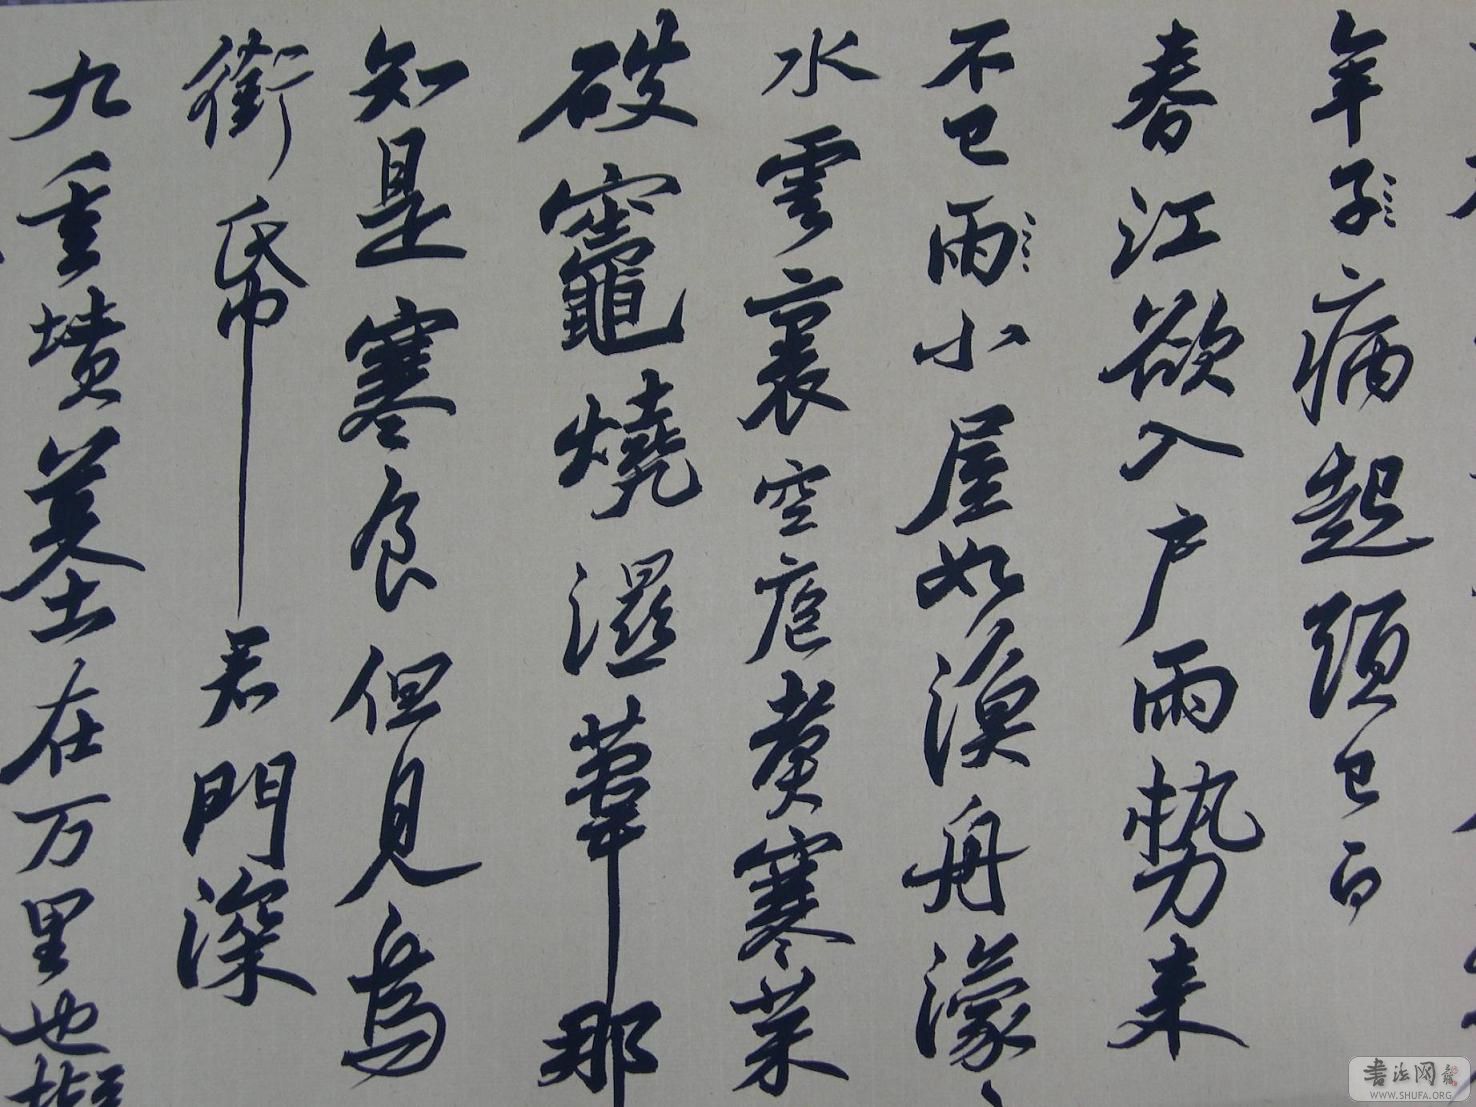 年子病起頭已白
春江欲入户雨勢来
不已雨小屋如漁舟濛
水雲裏空庖煑寒菜
破竈燒濕葦那
知是寒食但見烏
銜帋君門深
九重墳墓在万里也擬
書法网
WWW.SHUFA.ORG